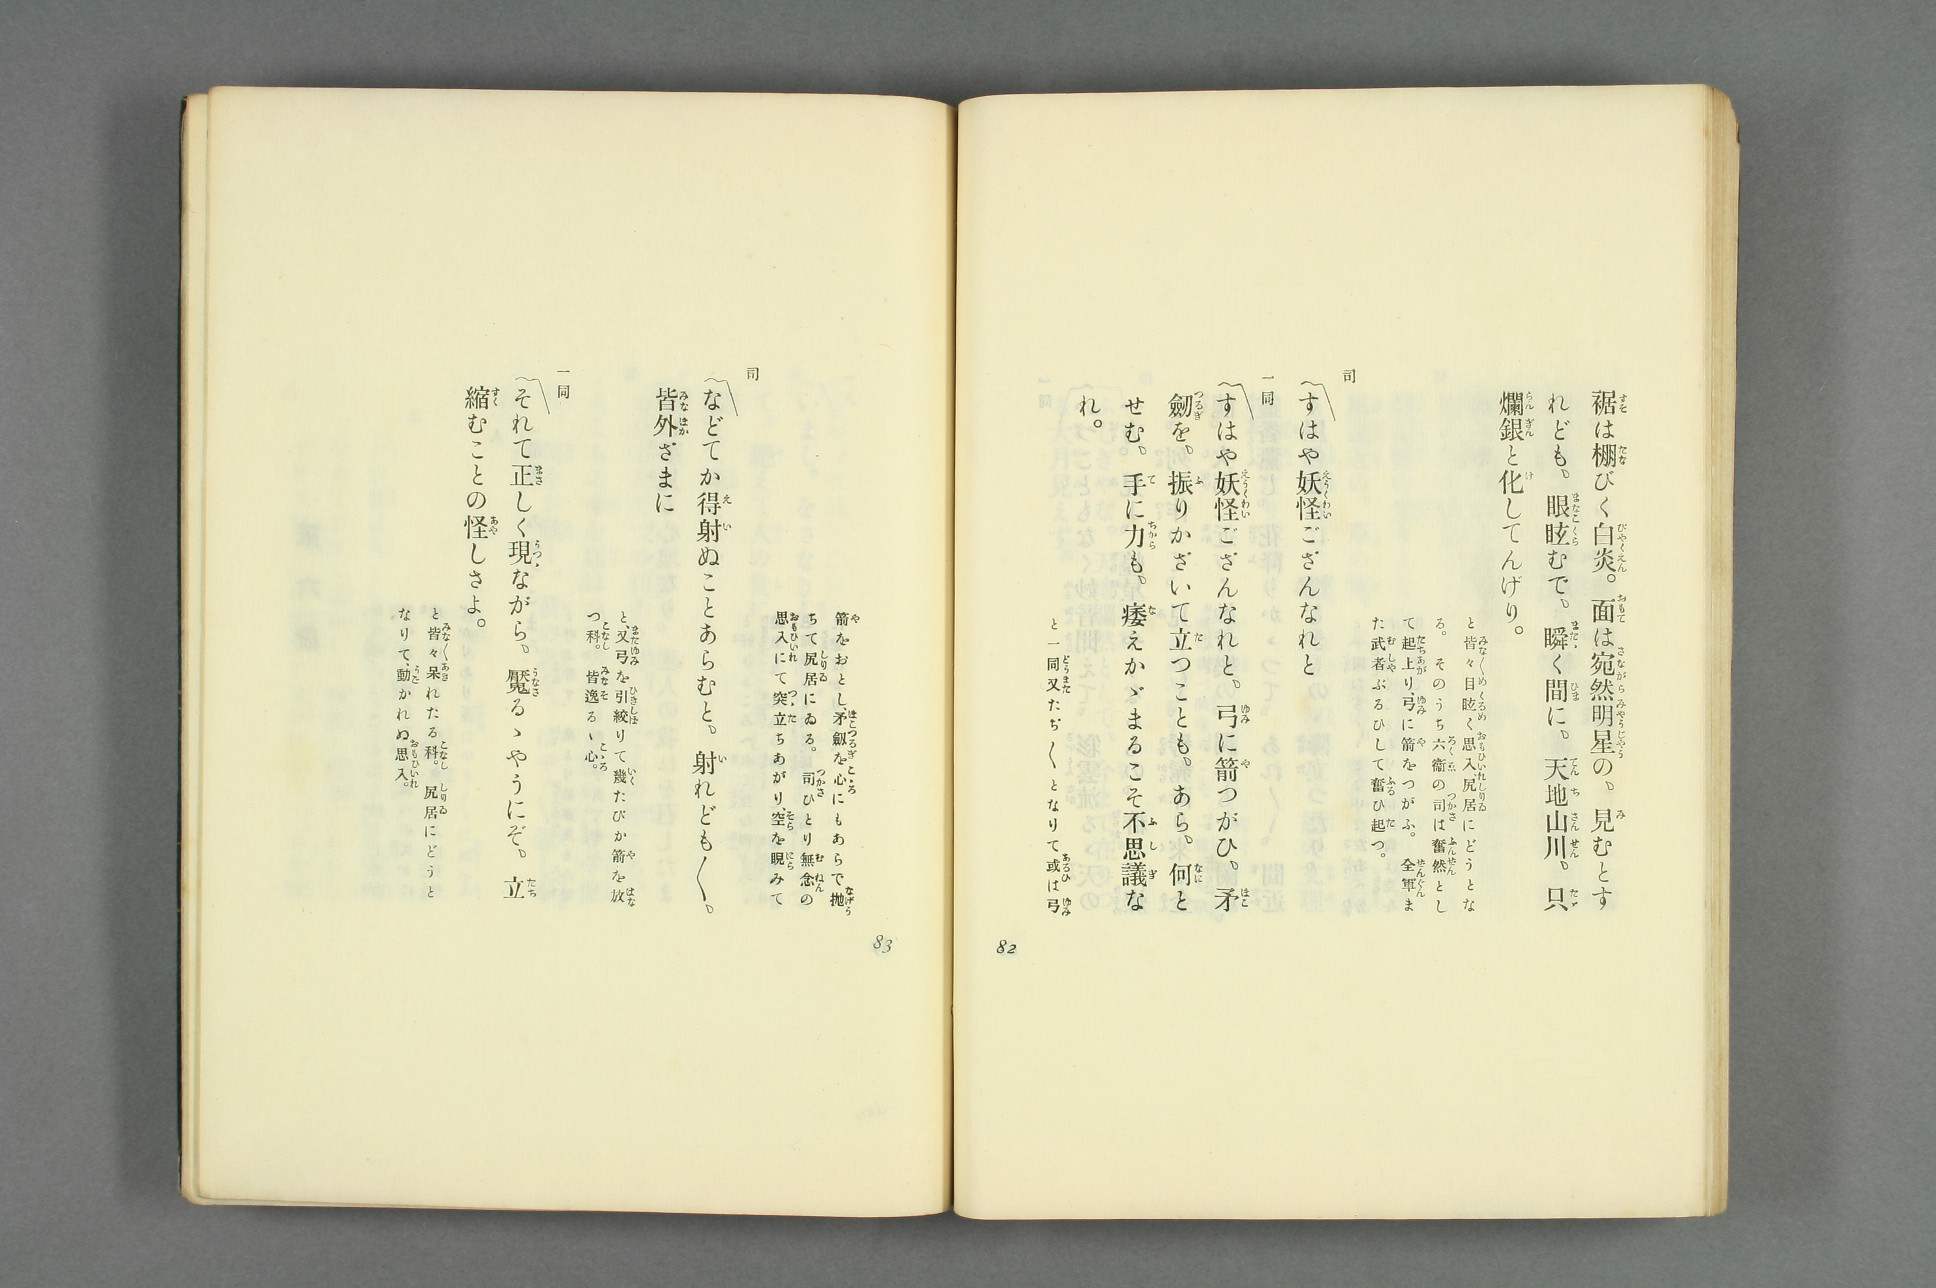 裾は棚びく白炎。面は宛然明星の、見むとす
れども、眼眩むで、瞬く間に、天地山川、只
爛銀と化してんげり。
と皆々目眩く思入尻居にどうとな
る。そのうち六衞の司は奮然とし
て起上り、弓に箭をつがふ。全軍ま
た武者ぶるひして奮ひ起つ。
司
〽すはや妖怪ござんなれと
一同
〽すはや妖怪ござんなれと。弓に箭つがひ、矛
劒を、振りかざいて立つことも、あら、何と
せむ、手に力も、痿えかゞまるこそ不思議な
れ。
と一同又たぢ〳〵となりて或は弓
82
箭をおとし、矛劔を心にもあらで抛
ちて尻居にゐる。司ひとり無念の
思入にて突立ちあがり、空を睨みて
司
〽などてか得射ぬことあらむと、射れども〳〵。
皆外ざまに
と、又弓を引絞りて幾たびか箭を放
つ科。皆逸るゝ心。
一同
〽それて正しく現ながら、魘るゝやうにぞ、立
縮むことの怪しさよ。
と皆々呆れたる科。尻居にどうと
なりて、動かれぬ思入。
83